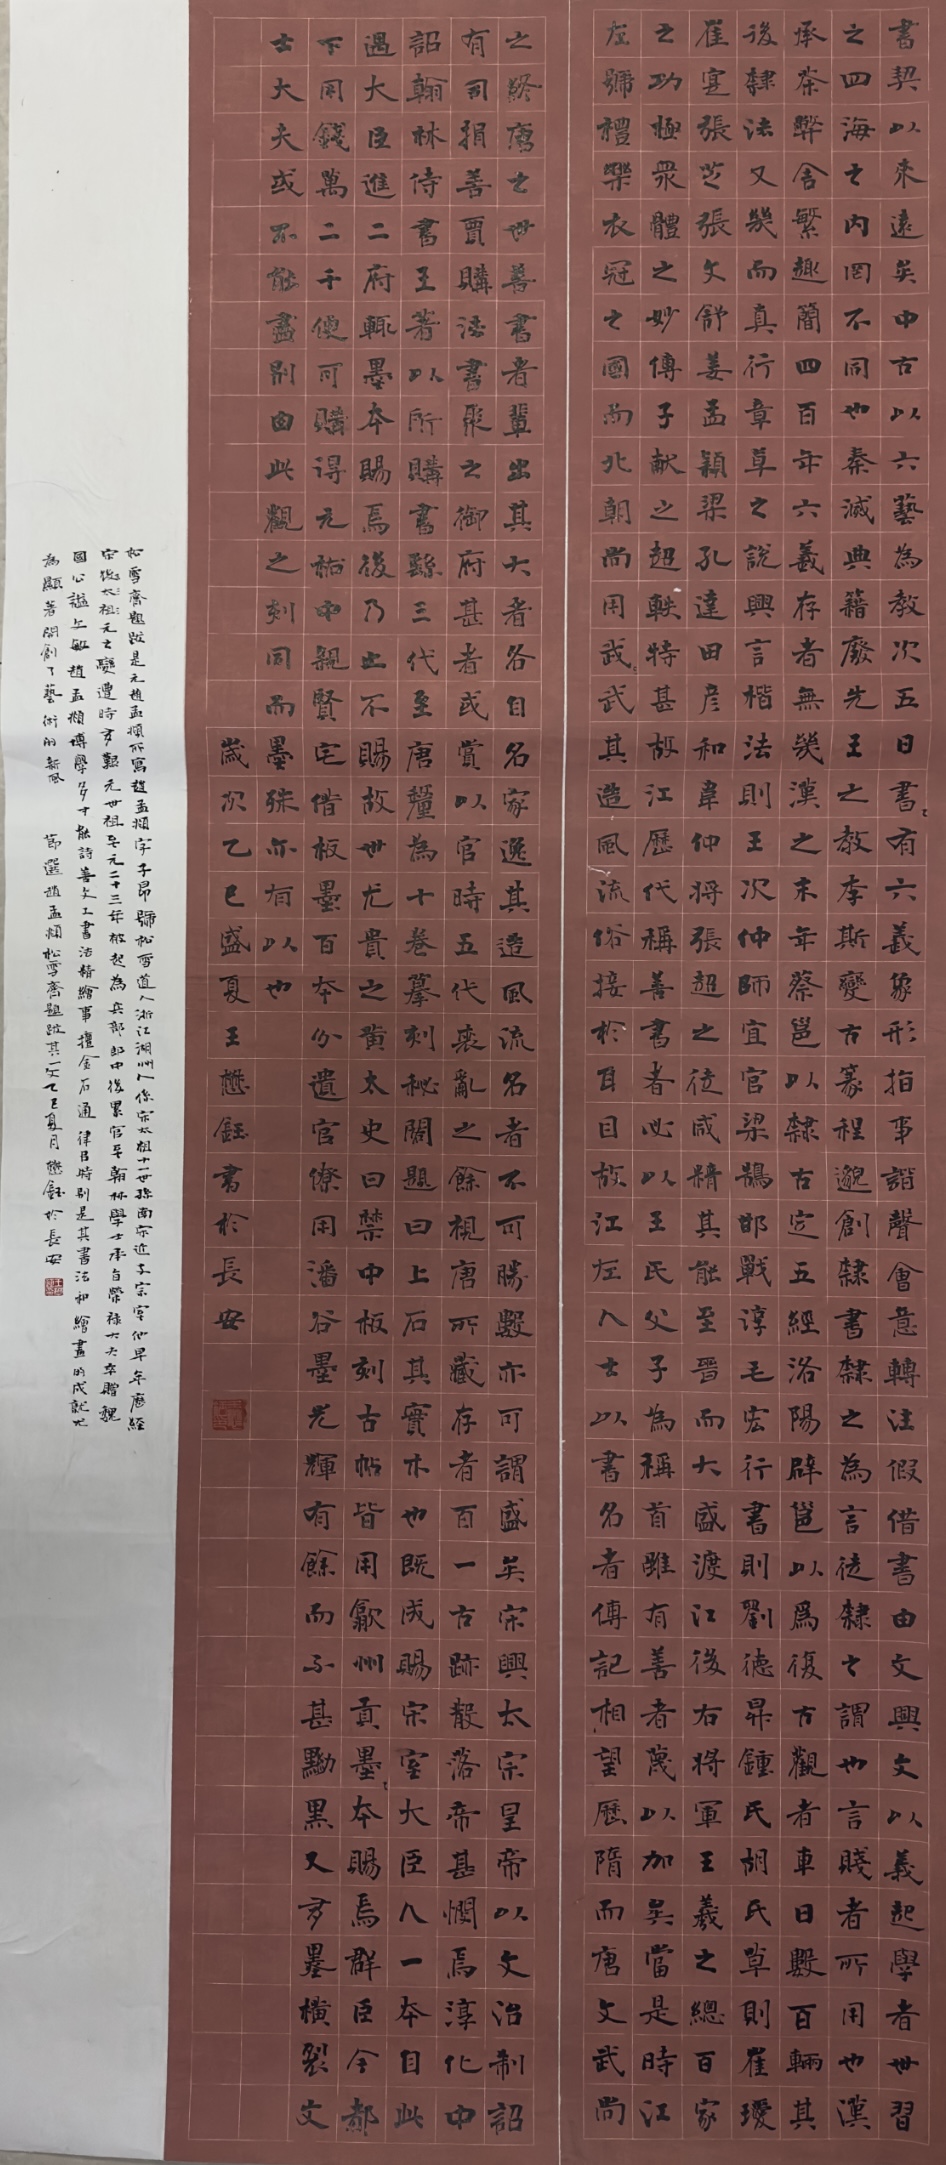 書契以來遠矣中古以六藝為教次五日書有六義象形指事諧聲會意轉注假借書由文興文以義起學者世習
之四海之內罔不同也秦滅典籍廢先王之教李斯變古篆程邈創隸書隸之為言徒隸之謂也言賤者所用也漢
承秦弊舍繁趣簡四百年六義存者無幾漢之末年蔡邕以隸古定五經洛陽辟邕以為復古觀者車日數百輛其
後隸法又幾而真行章草之說興言楷法則王次仲師宜官梁鵠邯戰淳毛宏行書則劉德昇鍾氏胡氏草則崔瑗
崔寔張芝張文舒姜孟穎梁孔達田彥和韋仲將張超之徒咸精其能至晉而大盛渡江後右將軍王羲之總百家
之功極眾體之妙傳子獻之超軼特甚故江歷代稱善書者必以王民父子為稱首雖有善者蔑以加矣當是時江
左號禮樂衣冠之國而北朝尚用武武其造風流俗接於耳目故江左人士以書名者傳記相望歷隋而唐文武尚
之終唐之世善書者輩出其大者各自名家逸其遺風流名者不可勝數亦可謂盛矣宋興太宗皇帝以文治制詔
有司捐善賈購法書聚之御府甚者或賞以官時五代喪亂之餘視唐所藏存者百一古跡散落帝甚憫焉淳化中
詔翰林侍書王著以所購書繇三代至唐釐為十卷摹刻秘閣題曰上石其實木也既成賜宗室大臣人一本自此
遇大臣進二府輒墨本賜焉後乃止不賜故世尤貴之黃太史曰禁中板刻古帖皆用歙州貢墨本賜焉群臣今都
下用錢萬二千便可購得元祐中親賢宅借板墨百本分遺官僚用潘谷墨光輝有餘而不甚黝黑又多墨橫裂文
士大夫或不能盡別由此觀之刻同而墨殊亦有以也
歲次乙巳盛夏王懋鈺書於長安
松雪齋題跋是元趙孟頫所寫趙孟頫字子昂號松雪道人浙江湖州人係宋太祖十一世孫南宋近支宗室他早年歷經
宋元之變遭時多艱元世祖至元二十三年被起為兵部郎中後累官至翰林學士承旨榮祿大夫卒贈魏
國公諡文敏趙孟頫博學多才能詩善文工書法精繪事擅金石通律呂時別是其書法和繪畫的成就尤
為顯著開創了藝術的新風 節選趙孟頫松雪齋題跋其一文乙巳夏月懋鈺於長安